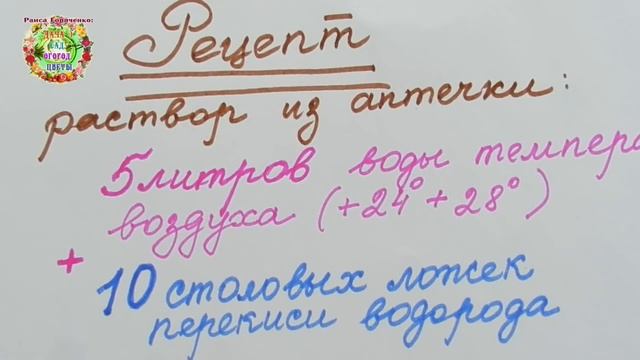 Раиса Горяченко:
ДАЧА
САД
ОГОРОД
ЦВЕТЫ
Рецепт
раствор из аптечки:
5 литров воды темпера
воздуха (+24° +28°)
+
10 столовых ложек
перекиси водорода